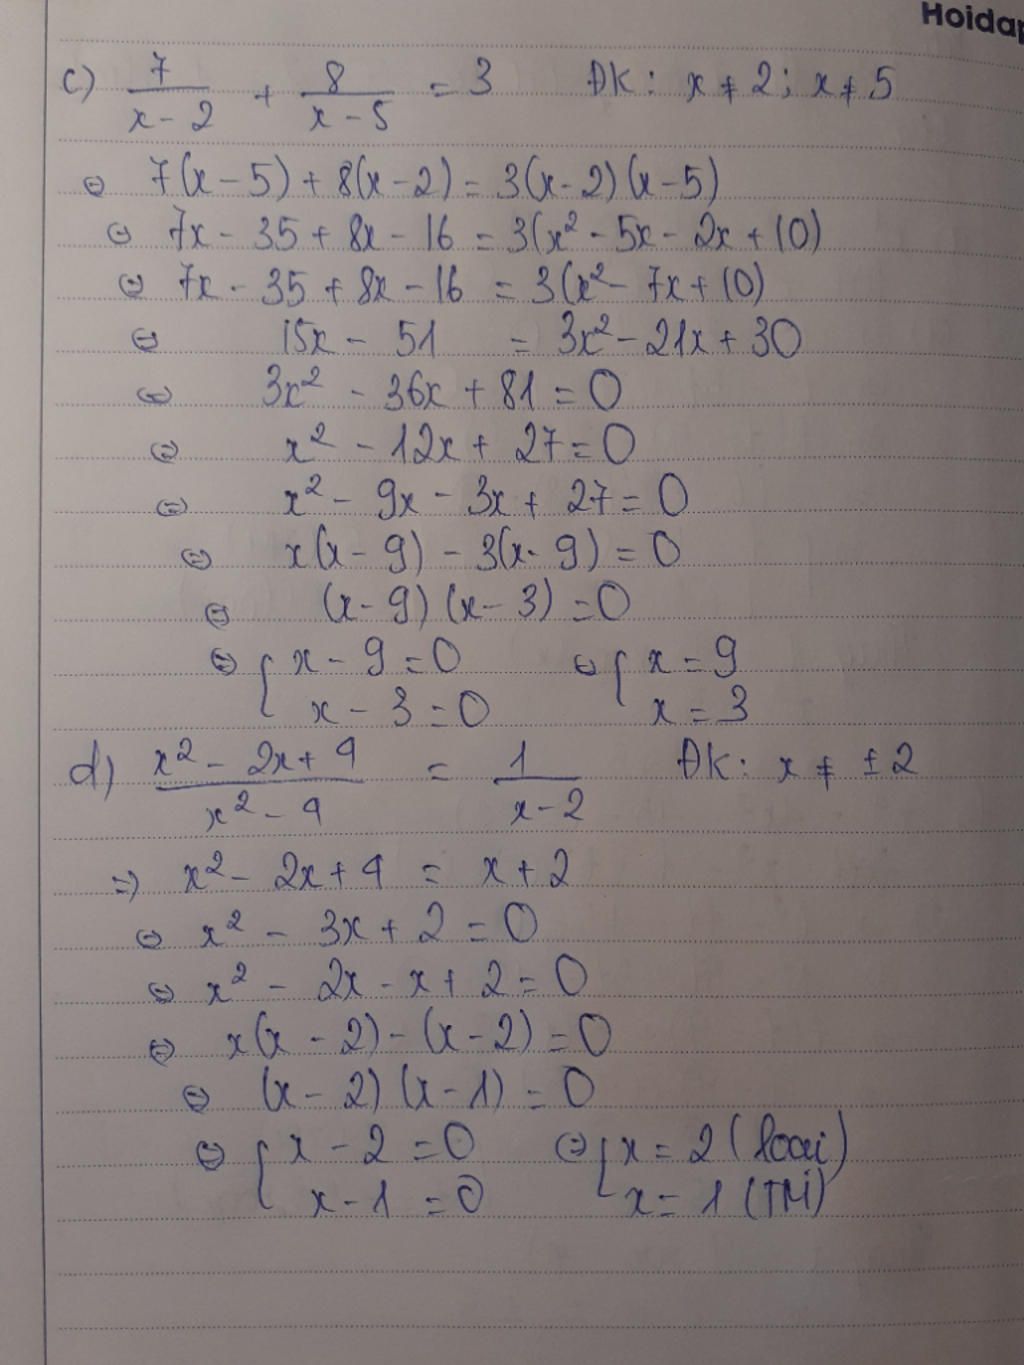 Hoidap
c) 7/(x - 2) + 8/(x - 5) = 3 ĐK: x ≠ 2; x ≠ 5
⇔ 7(x - 5) + 8(x - 2) = 3(x - 2)(x - 5)
⇔ 7x - 35 + 8x - 16 = 3(x² - 5x - 2x + 10)
⇔ 7x - 35 + 8x - 16 = 3(x² - 7x + 10)
⇔ 15x - 51 = 3x² - 21x + 30
⇔ 3x² - 36x + 81 = 0
⇔ x² - 12x + 27 = 0
⇔ x² - 9x - 3x + 27 = 0
⇔ x(x - 9) - 3(x - 9) = 0
⇔ (x - 9)(x - 3) = 0
⇔ [ x - 9 = 0 ⇔ [ x = 9
x - 3 = 0 x = 3
d) (x² - 2x + 4)/(x² - 4) = 1/(x - 2) ĐK: x ≠ ±2
=> x² - 2x + 4 = x + 2
⇔ x² - 3x + 2 = 0
⇔ x² - 2x - x + 2 = 0
⇔ x(x - 2) - (x - 2) = 0
⇔ (x - 2)(x - 1) = 0
⇔ [ x - 2 = 0 ⇔ [ x = 2 (loại)
x - 1 = 0 x = 1 (TM)